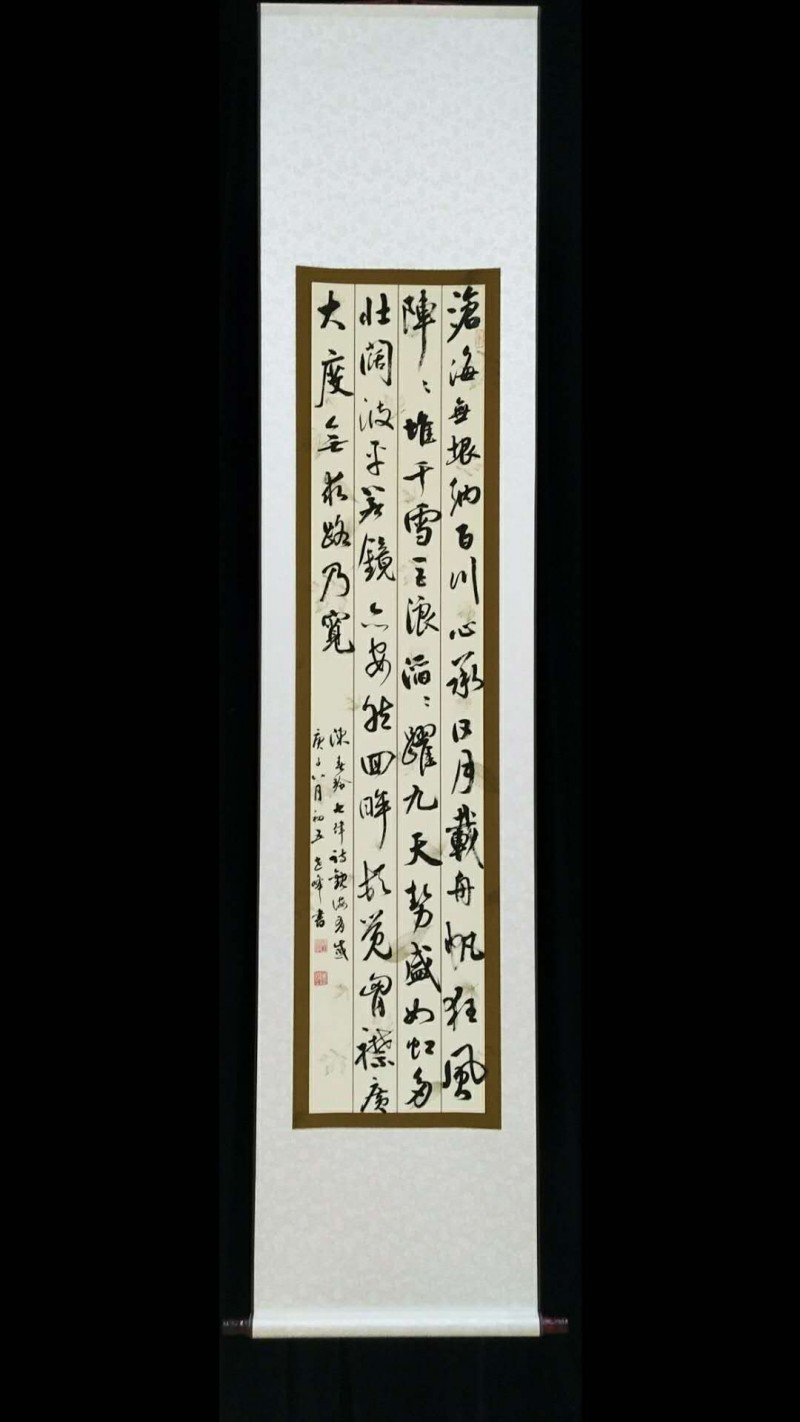 滄海無垠納百川心承日月載舟帆狂風
陣陣堆千雪巨浪滔滔躍九天勢盛如虹多
壯闊波平若鏡亦安然回眸頓覺胸襟廣
大度無求路乃寬
陳春玲七律詩觀海有感
庚子八月初五 峰書